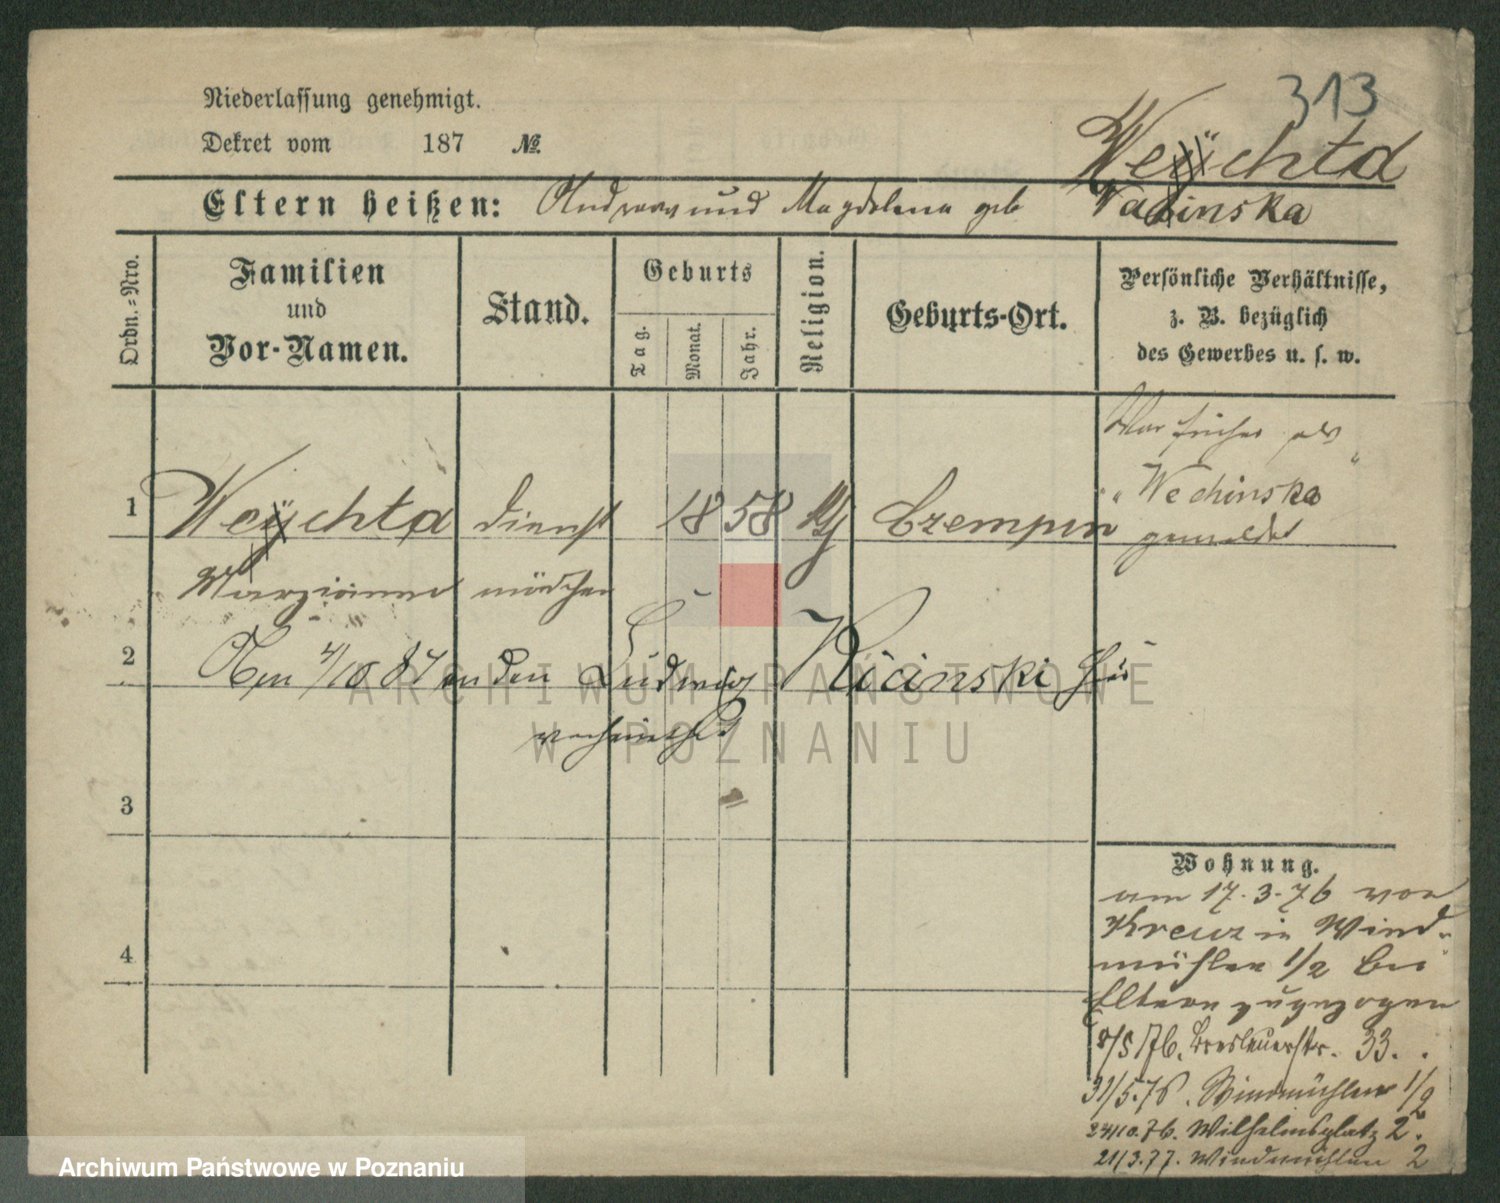 313
Niederlassung genehmigt.
Dekret vom 187 №.
Weÿchta
Eltern heißen: Andreas und Magdalena geb Wadinska
Ordn.-Nro.
Familien
und
Vor-Namen.
Stand.
Geburts
Tag.
Monat.
Jahr.
Religion.
Geburts-Ort.
Persönliche Verhältnisse,
z. B. bezüglich
des Gewerbes u. s. w.
War früher als
"Wechinska"
gemeldet
1 Weÿchta dienst 1858 Czempin
Marzianna mädchen
2 Am 4/10 87 an den Ludwig Kicinski hier
verheirathet
3
4
Wohnung.
am 17.3.76 von
Kreuz in Wind-
mühlen 1/2 bei
Eltern zugezogen
8/5 76. Breslauerstr. 33.
31/5.76. Windmühlen 1/2
24/10.76. Wilhelmsplatz 2.
21/3.77. Windmühlen 2
ARCHIWUM PAŃSTWOWE
W POZNANIU
Archiwum Państwowe w Poznaniu